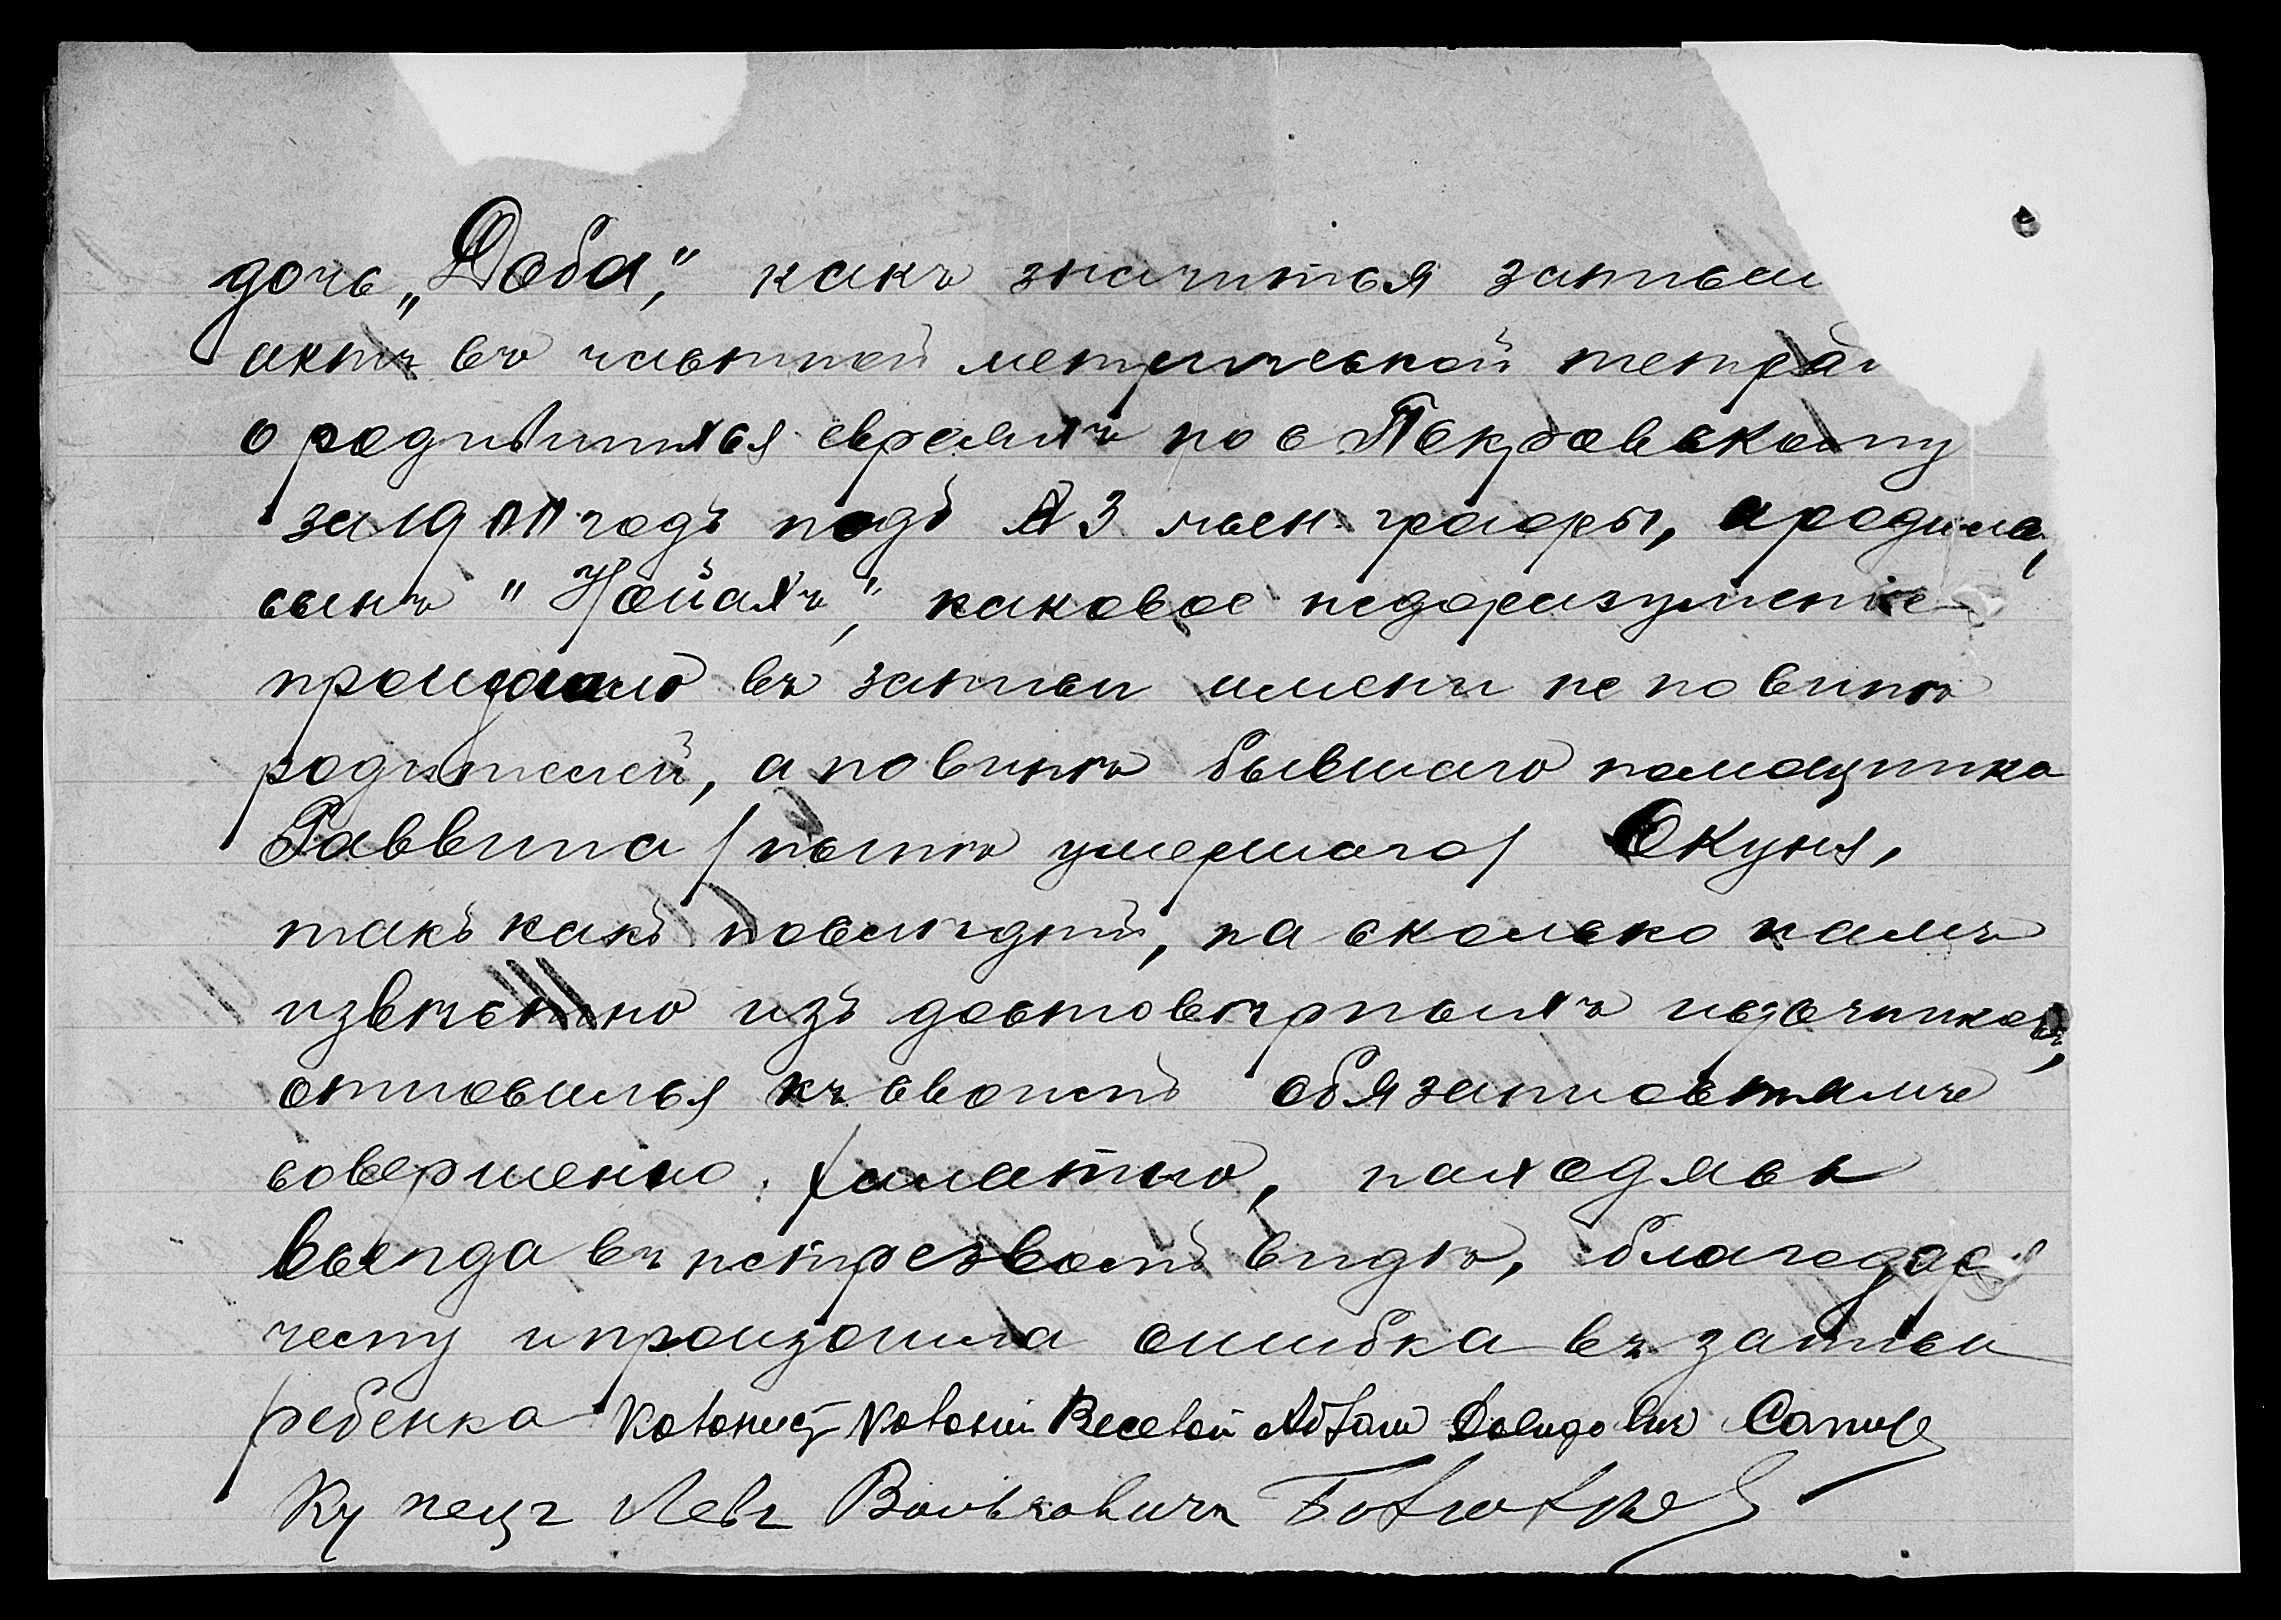 дочь „Доба", какъ значиться записи
актъ въ частной метрической тетрад
о родившихся евреяхъ по с Покровскому
за 19 годъ подъ № 3 жен. графы, а родила
сынъ "Нойахъ", каковое недоразумѣніе
произошло въ записи имени не по винѣ
родителей, а по винѣ бывшаго помощника
Раввина /нынѣ умершаго/ Окуня,
такъ какъ послѣдній, на сколько намъ
извѣстно изъ достовѣрныхъ источниковъ,
относился къ своимъ обязанностямъ
совершенно халатно, находясь
всегда въ нетрезвомъ видѣ, благодаря
чему и произошла ошибка въ записи
ребенка Колонистъ Колоніи Веселой
Купецъ Левъ Вольѳовичъ